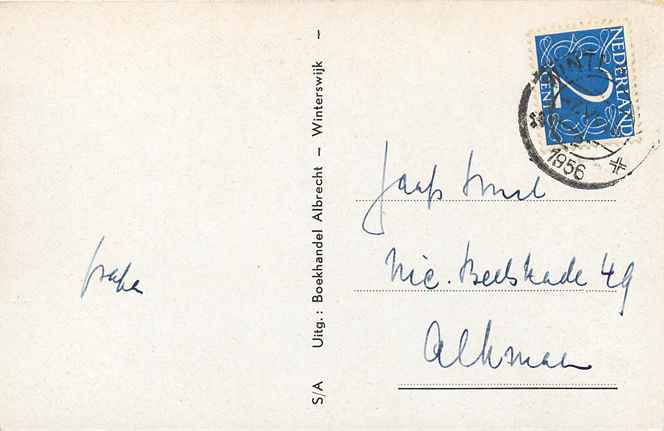 papa
S/A Uitg.: Boekhandel Albrecht – Winterswijk –
NEDERLAND
2
CENT
1956
Jaap Smit
Nic. Beetskade 49
Alkmaar